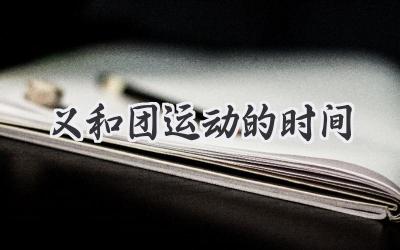 义和团运动的时间